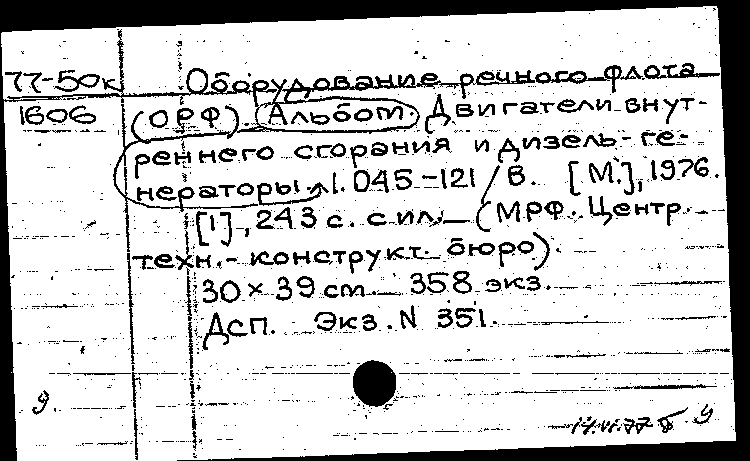 77-50к Оборудование речного флота
1606 (ОРФ). Альбом. Двигатели внут-
реннего сгорания и дизель-ге-
нераторы. 1.045-121 / В. [М.], 1976.
[1], 243 с. с ил. — (МРФ. Центр.
техн.- конструкт. бюро).
30 × 39 cm. 358 экз.
Дсп. Экз. N 351.
9.
14.VI.77 9